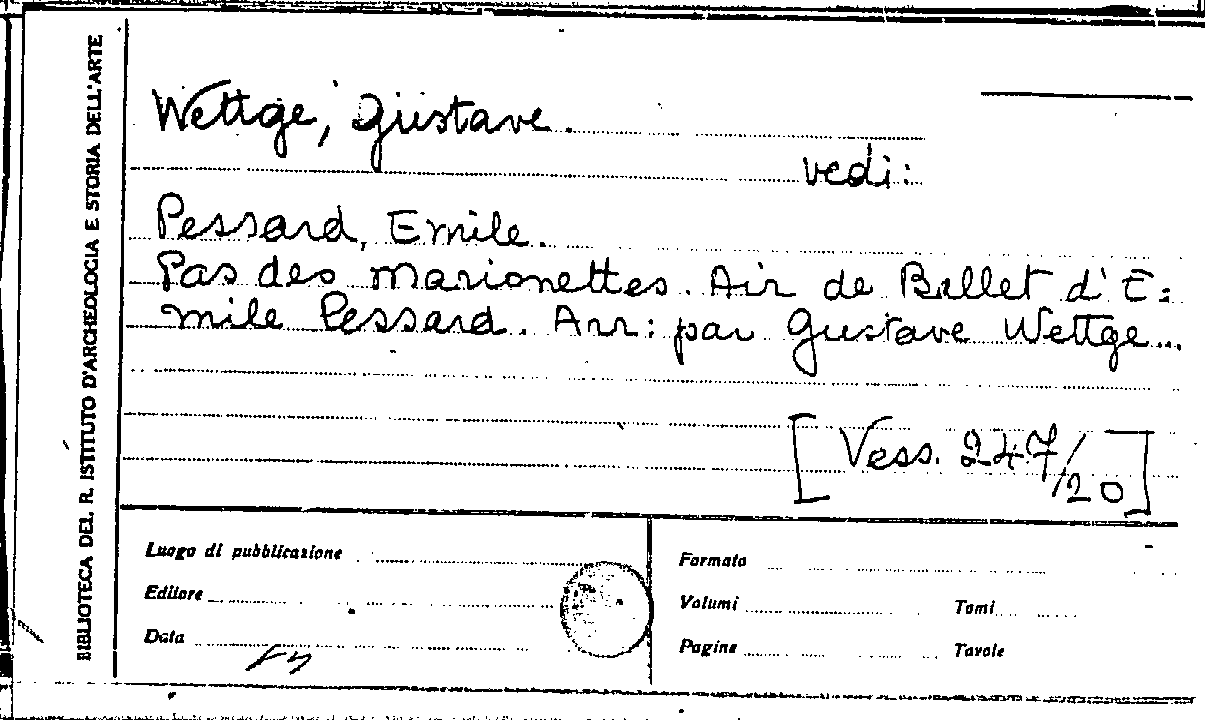 BIBLIOTECA DEL R. ISTITUTO D'ARCHEOLOGIA E STORIA DELL'ARTE
Wettge, Gustave.
vedi:
Pessard, Emile.
Pas des marionettes. Air de Ballet d'E=
mile Pessard. Arr: par Gustave Wettge...
[Vess. 247/20]
Luogo di pubblicazione
Editore
Data
Formato
Volumi Tomi
Pagine Tavole